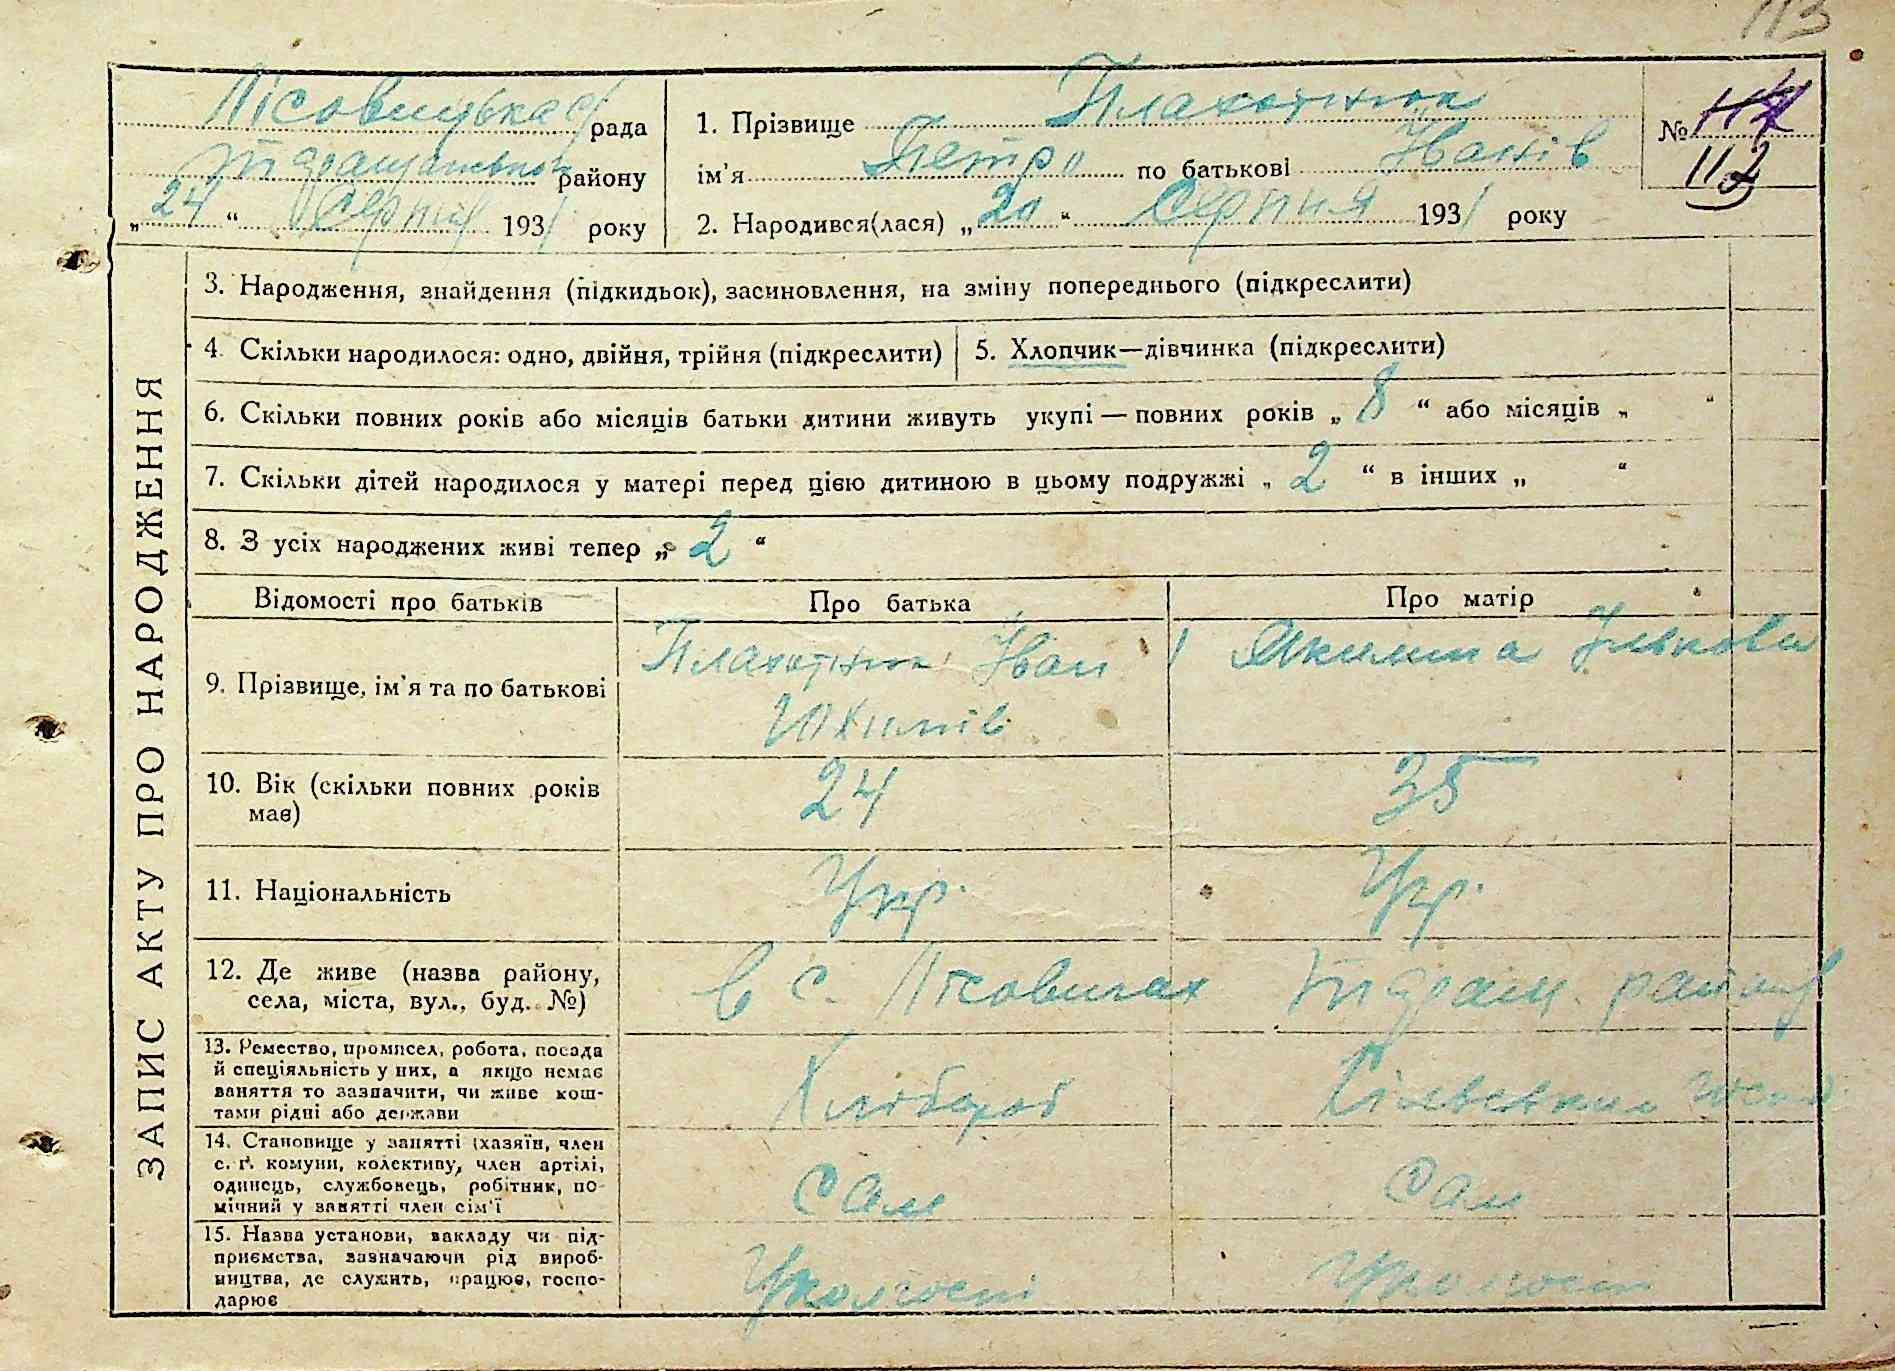 113
Лісовицька с/рада
Тетіївського району
„24“ Серпня 1931 року
1. Прізвище Плахотнюк
ім'я Петро по батькові Іванів
2. Народився(лася) „20“ Серпня 1931 року
№ 117
112
ЗАПИС АКТУ ПРО НАРОДЖЕННЯ
3. Народження, знайдення (підкидьок), засиновлення, на зміну попереднього (підкреслити)
4. Скільки народилося: одно, двійня, трійня (підкреслити)
5. Хлопчик—дівчинка (підкреслити)
6. Скільки повних років або місяців батьки дитини живуть укупі — повних років „8“ або місяців „ “
7. Скільки дітей народилося у матері перед цією дитиною в цьому подружжі „2“ в інших „ “
8. З усіх народжених живі тепер „2“
Відомості про батьків
Про батька
Про матір
9. Прізвище, ім'я та по батькові
Плахотнюк Іван
Юхимів
Якилина
10. Вік (скільки повних років
має)
24
35
11. Національність
Укр.
Укр.
12. Де живе (назва району,
села, міста, вул., буд. №)
в с. Лісовичах
району
13. Ремество, промисел, робота, посада
й спеціяльність у них, а якщо немає
заняття то зазначити, чи живе кош-
тами рідні або держави
Хлібороб
Сільське госп.
14. Становище у занятті (хазяїн, член
с. г. комуни, колективу, член артілі,
одинець, службовець, робітник, по-
мічний у занятті член сім'ї
Сам
Сам
15. Назва установи, закладу чи під-
приємства, зазначаючи рід вироб-
ництва, де служить, працює, госпо-
дарює
У колгоспі
У колгоспі